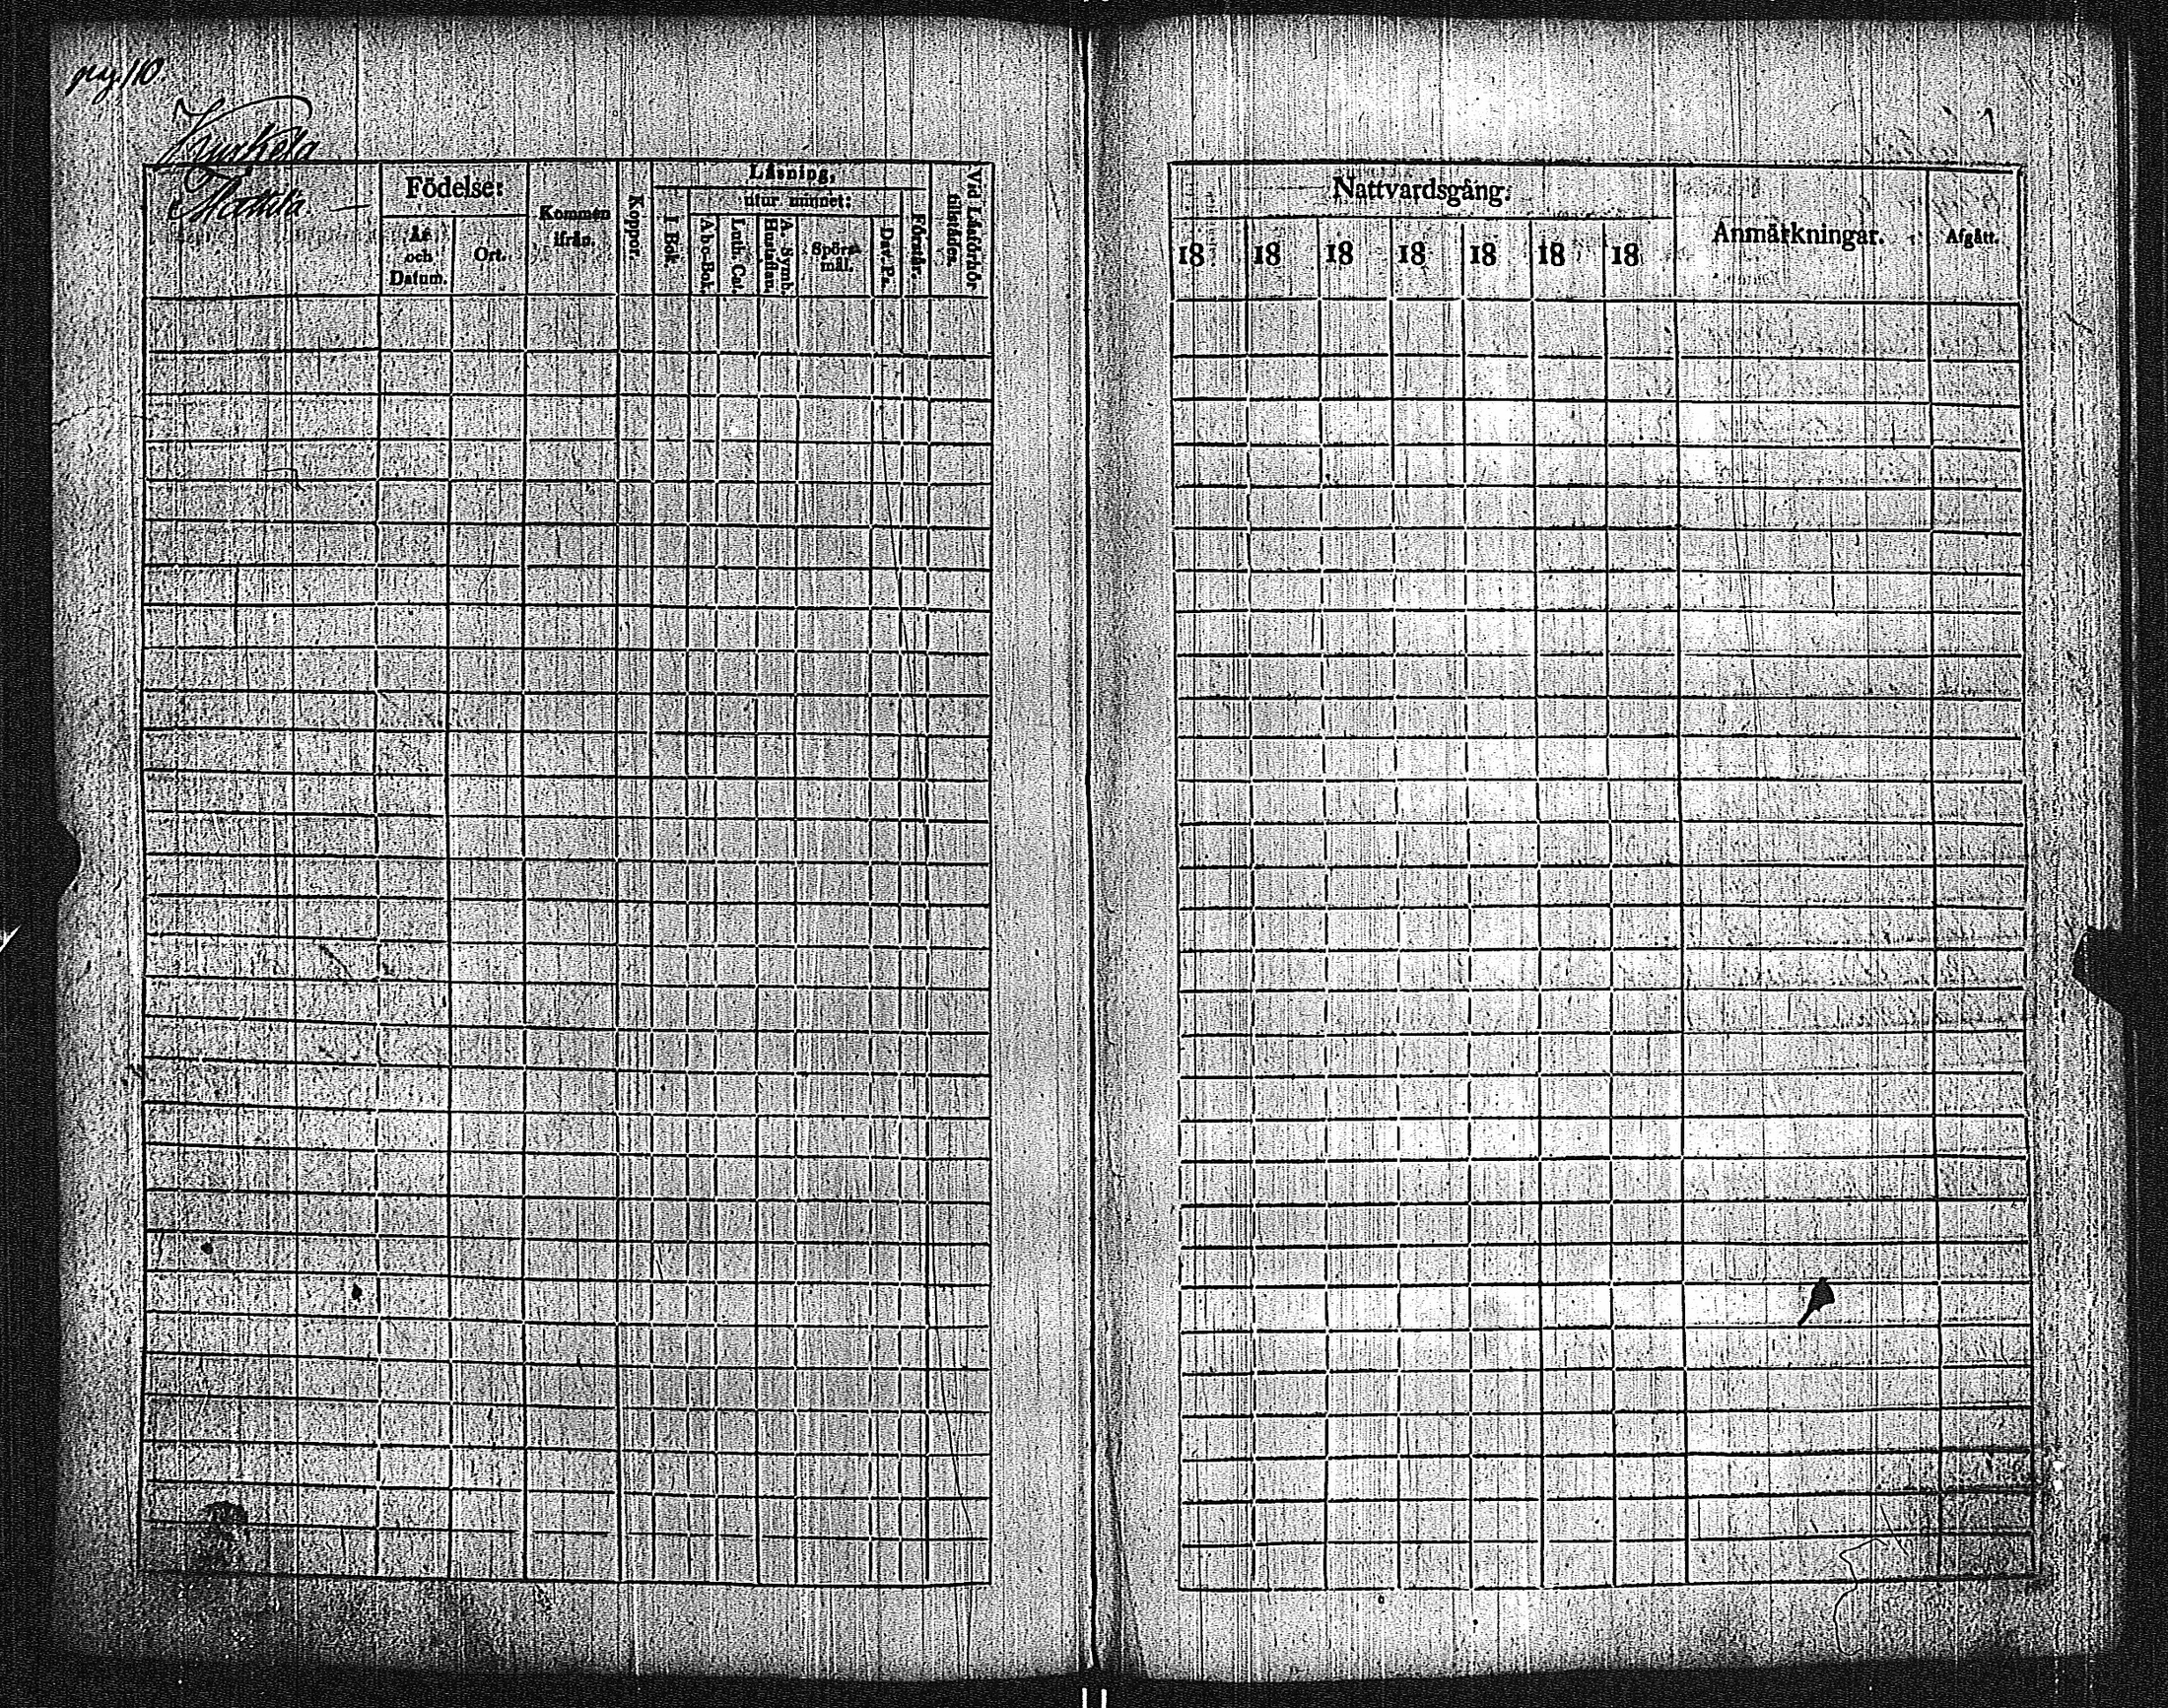 pag 110
Mattila
Födelse:
År och Datum.
Ort.
Kommen ifrån.
Koppor.
Läsning,
I Bok.
utur minnet:
Abc-Bok.
Luth. Cat.
A. Symb. Hustaflan.
Spörs- mål.
Dav. Ps.
Förstår.
Vid Läsförhör tillstädes.
Nattvardsgång:
18 18 18 18 18 18 18
Anmärkningar.
Afgått.